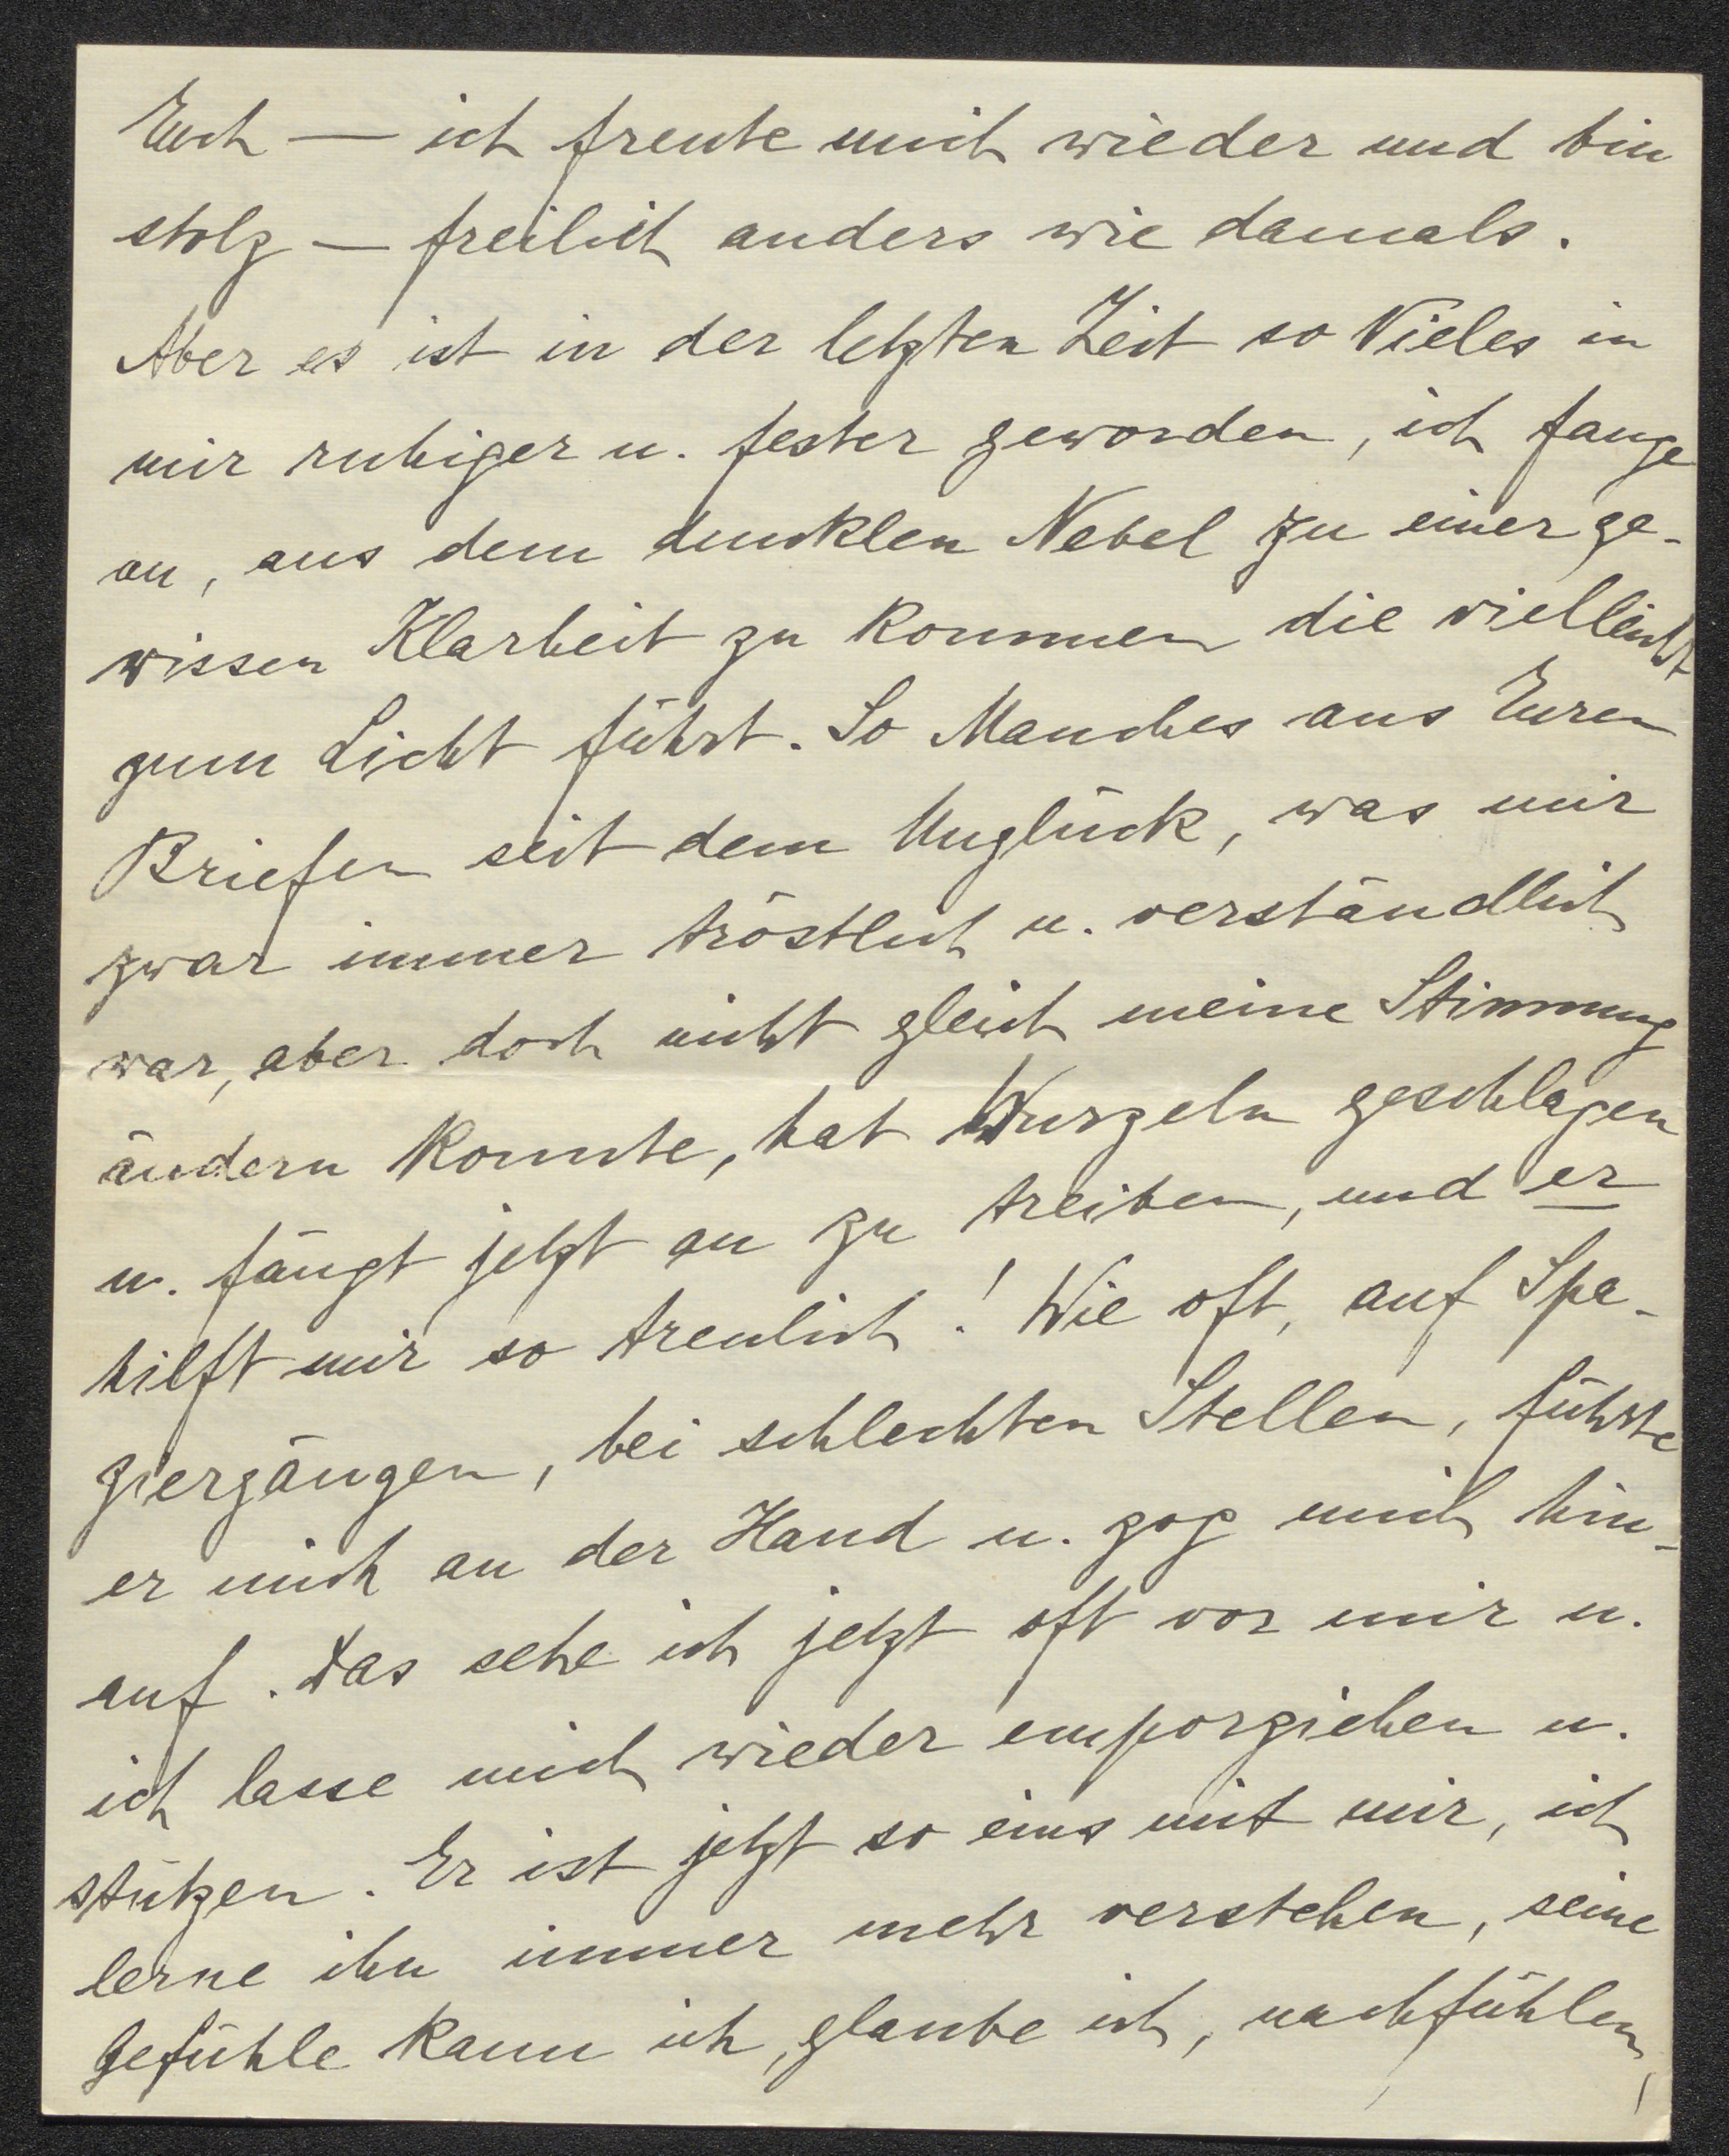 Euch — ich freute mich wieder und bin
stolz — freilich anders wie damals.
Aber es ist in der letzten Zeit so Vieles in
mir ruhiger u. fester geworden, ich fange
an, aus dem dunklen Nebel zu einer ge-
wissen Klarheit zu kommen die vielleicht
zum Licht führt. So Manches aus Euren
Briefen seit dem Unglück, was mir
zwar immer tröstlich u. verständlich
war, aber doch nicht gleich meine Stimmung
ändern konnte, hat Wurzeln geschlagen
u. fängt jetzt an zu treiben, und er
hilft mir so treulich! Wie oft, auf Spa-
ziergängen, bei schlechten Stellen, führte
er mich an der Hand u. zog mich hin-
auf. Das sehe ich jetzt oft vor mir u.
ich lasse mich wieder emporziehen u.
stützen. Er ist jetzt so eins mit mir, ich
lerne ihn immer mehr verstehen, seine
Gefühle kann ich, glaube ich, nachfühlen,